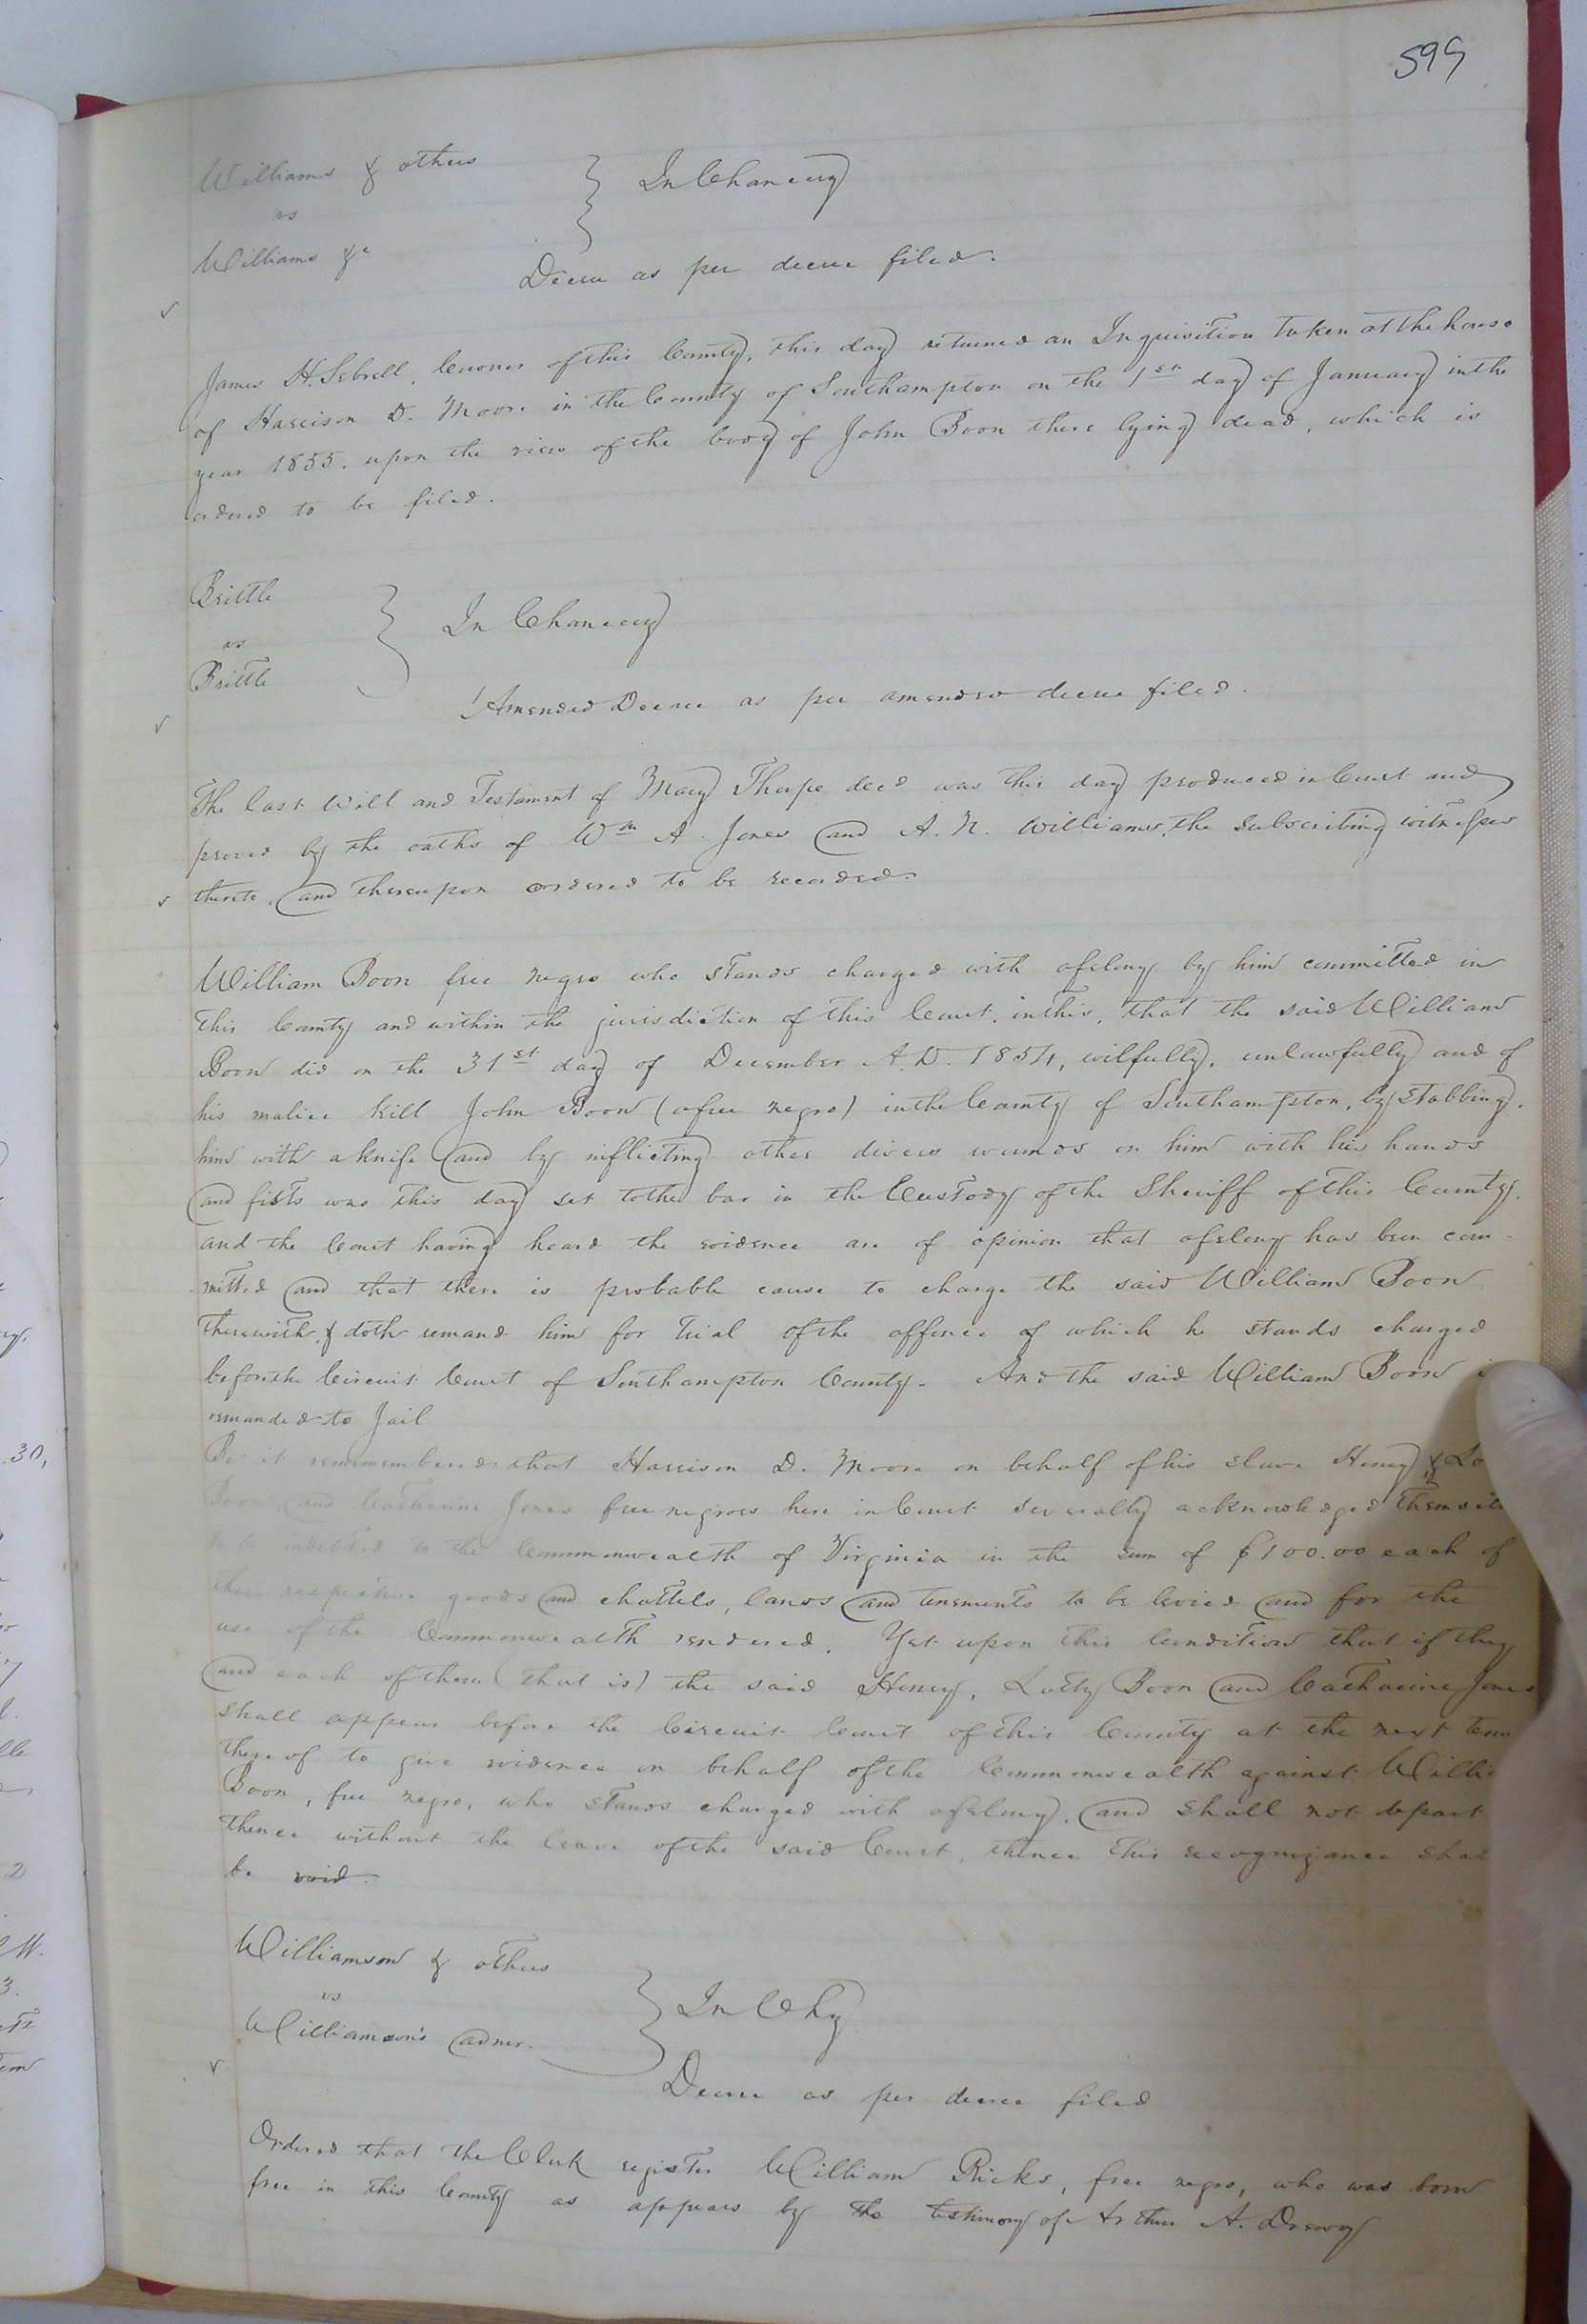 599
Williams & others
vs
Williams &c
In Chancery
Decree as per decree filed.
James H. Sebrell, Coroner of this County, this day returned an Inquisition taken at the house
of Harrison D. Moore in the County of Southampton on the 1st day of January in the
year 1855. upon the view of the body of John Boon there lying dead, which is
ordered to be filed.
Brittle
vs
Brittle
In Chancery
Amended Decree as per amended decree filed.
The last Will and Testament of Mary Thorpe decd was this day produced in Court and
proved by the oaths of Wm A. Jones and A. N. Williams, the subscribing witnesses
thereto, and thereupon ordered to be recorded.
William Boon free negro who stands charged with a felony by him committed in
this County and within the jurisdiction of this Court, in this, that the said William
Boon did on the 31st day of December A.D. 1854, wilfully, unlawfully and of
his malice kill John Boon (a free negro) in the County of Southampton, by stabbing,
him with a knife and by inflicting other divers wounds on him with his hands
and fists was this day set to the bar in the Custody of the Sheriff of this County.
and the Court having heard the evidence are of opinion that a felony has been com-
mitted and that there is probable cause to charge the said William Boon
therewith, & doth remand him for trial of the offence of which he stands charged
before the Circuit Court of Southampton County. And the said William Boon
remanded to Jail
Be it rememembered that Harrison D. Moore on behalf of his slave Henry &
Boon, and Catherine Jones free negroes here in Court severally acknowledged
to be indebted to the Commonwealth of Virginia in the sum of $100.00 each of
their respective goods and chattels, lands and tenements to be levied and for the
use of the Commonwealth rendered. Yet upon this Condition that if they
and each of them (that is) the said Henry, Lotty Boon and Catharine Jones
shall appear before the Circuit Court of this County at the next term
thereof to give evidence on behalf of the Commonwealth against
Boon, free negro, who stands charged with a felony, and shall not depart
thence without the leave of the said Court, thence this recognizance
be void.
Williamson & others
vs
Williamson's admr.
In Chy
Decree as per decree filed
Ordered that the Clerk register William Ricks, free negro, who was born
free in this County as appears by the testimony of Arthur A. Drewry